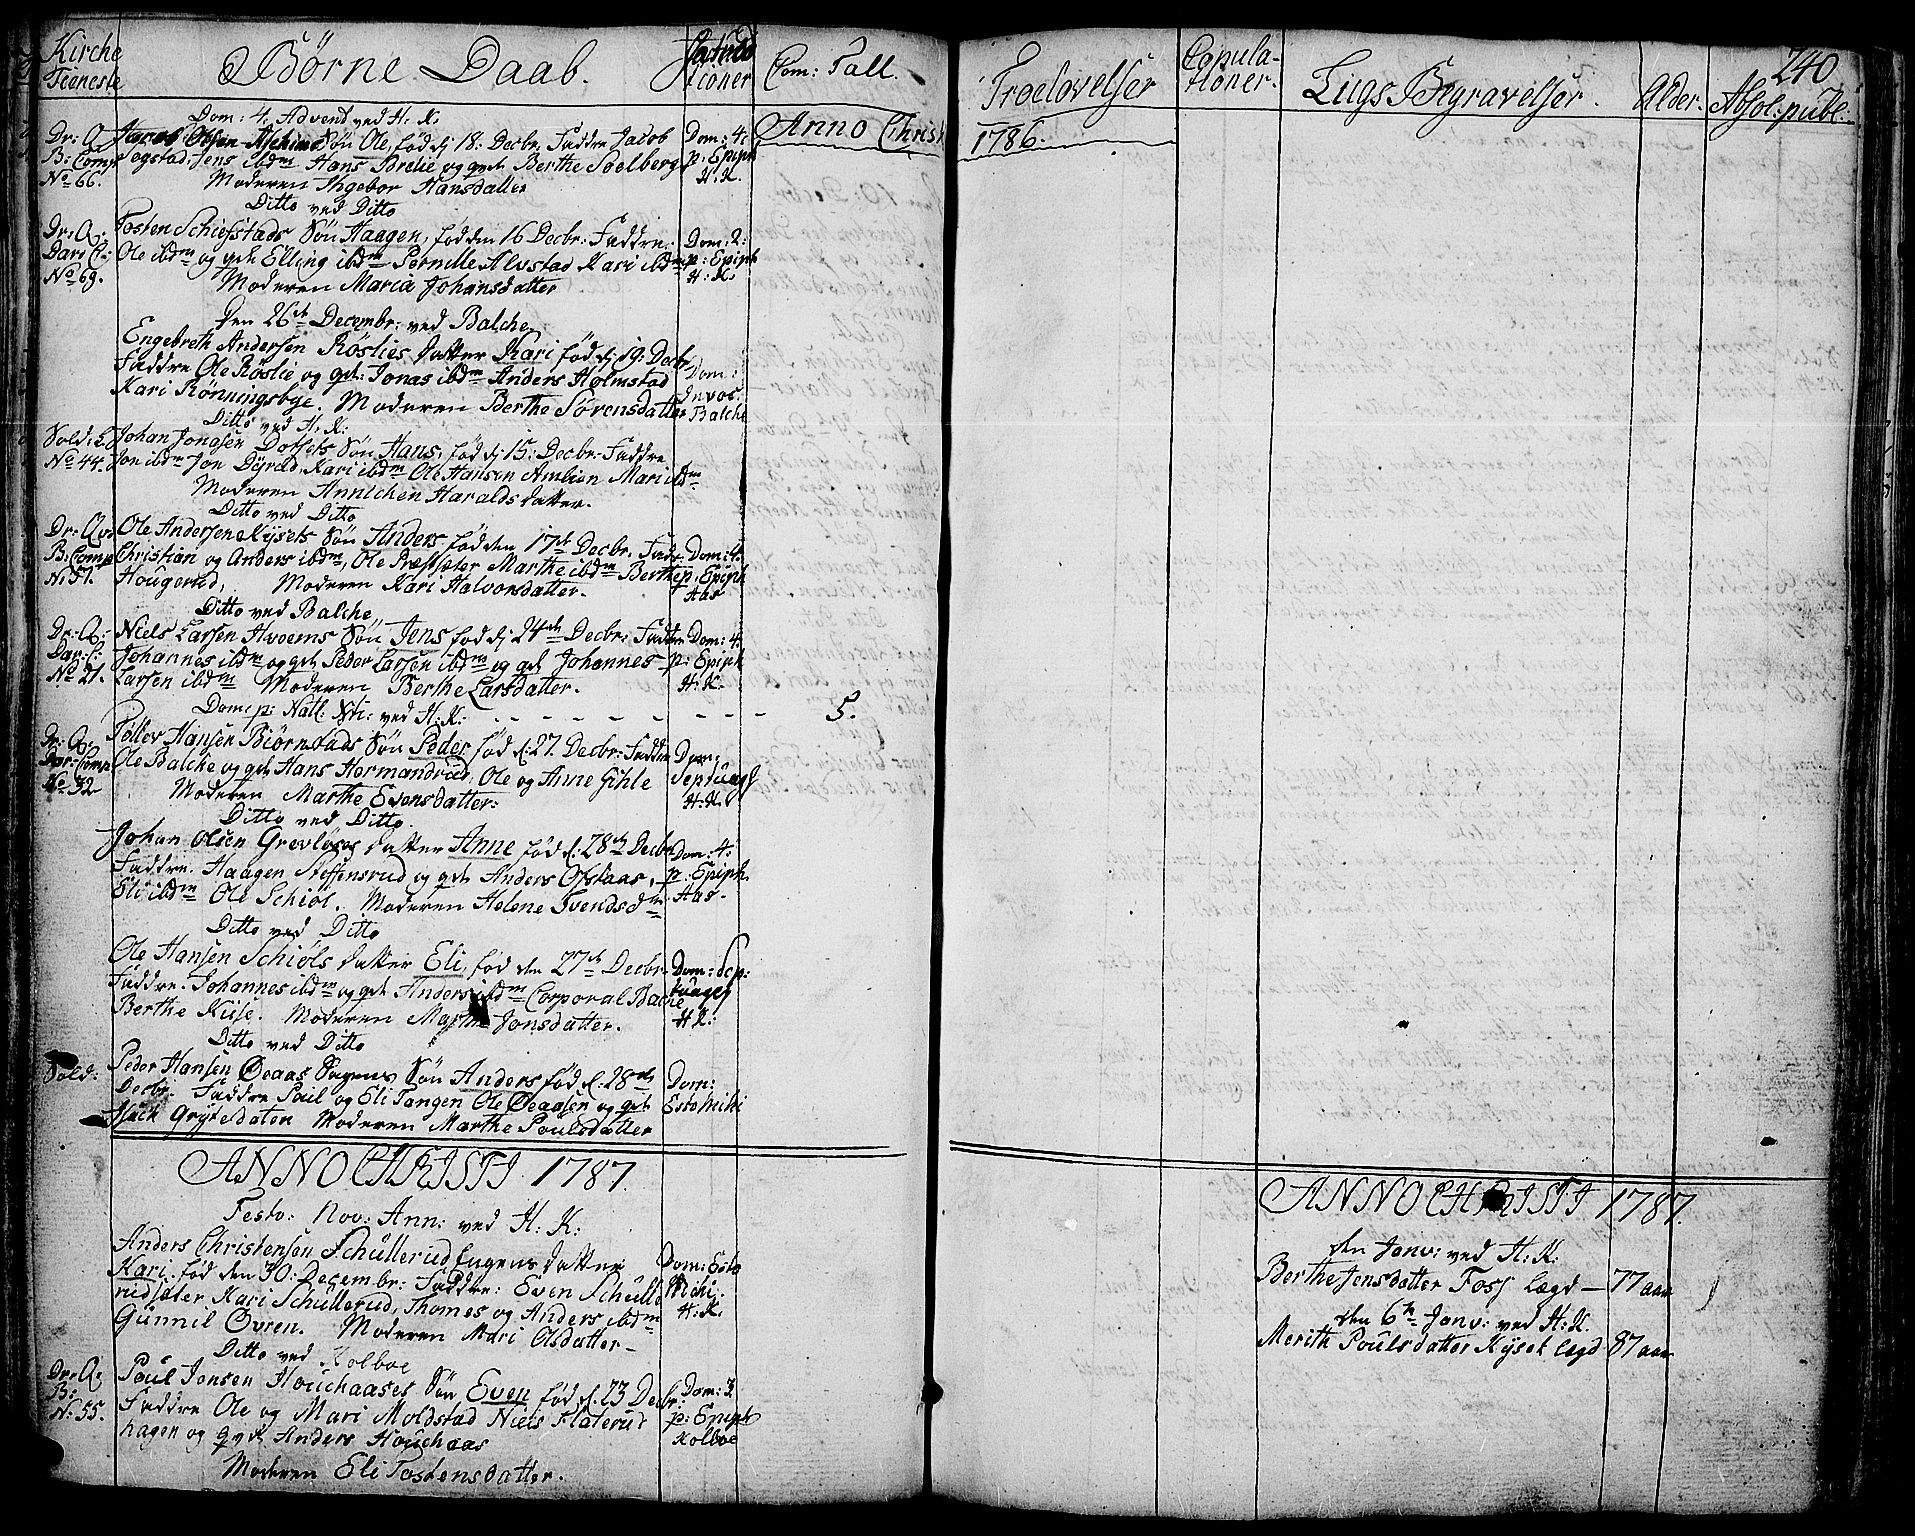 Kirche
Tieneste
Børne Daab.
tioner
Com: Tall.
Troelovelser
Copula-
tioner.
Liigs Begravelser.
Alder.
Absol: publ.
240
Anno Christi
1786.
Dom: 4. Advend ved H. K:
Søn Ole, fød d: 18: Decbr: Faddre Jacob
Segstad, Jens ibdm Hans Brelie og qvde Berthe Soelberg
Moderen Ingebor Hansdatter
Dr: Q:
B: Comp:
No 66.
Dom: 4:
p: Epiph
H. K.
Ditto ved Ditto
Tosten Schiefstads Søn Haagen, fød den 16 Decbr: Faddre
Ole ibdm og qvde Elling ibdm Pernille Alvstad Kari ibdm
Moderen Maria Johansdatter
Dr: Q:
No 69.
Dom: 2:
p: Epiph
H: K:
Den 26de Decembr: ved Balche
Engebreth Andersen Røslies datter Kari fød d: 19: Decbr
Faddre Ole Røslie og qvde: Jonas ibdm Anders Holmstad
Kari Rønningsbye. Moderen Berthe Sørensdatter
Dom:
Invoc:
Balche
Ditto ved H. K:
Johan Jonasen Dotsets Søn Hans, fød d: 15: Decbr: Faddre
Jon ibdm Jon Dyrud, Kari ibdm Ole Hansen Amlien Mari ibdm
Moderen Annichen Haralds datter.
No 44.
Ditto ved Ditto
Ole Andersen Kysets Søn Anders fød den 17de Decbr, Fadr
Christian og Anders ibdm, Ole Præstsæter Marthe ibdm Berthe
Hougerud, Moderen Kari Halvorsdatter.
Dr: Qv:
B: Comp
N: 57.
Dom: 4:
p: Epiph
Aas
Ditto ved Balche,
Niels Larsen Hvoems Søn Jens fød d: 24de Decbr: Faddre
Johannes ibdm og qvde Peder Larsen ibdm og qvde Johannes
Larsen ibdm Moderen Berthe Larsdatter.
Dr: Q:
No 21.
Dom: 4:
p: Epiph
H: K:
Dom: p: Natl: Xti: ved H: K: - - - - - - - 5.
Tollev Hansen Biørnstads Søn Peder fød d: 27. Decbr: Faddre
Ole Balche og qvde Hans Hermandrud, Ole og Anne Gihle
Moderen Marthe Evensdatter:
Dr: Q:
Dar: Comp
No 32
Dom:
Septuag:
H: K:
Ditto ved Ditto.
Johan Olsen Grevløses datter Anne fød d: 28de Decbr
Faddre. Haagen Steffensrud og qvde Anders Ofstaas,
Eli ibdm Ole Schiøl. Moderen Helene Svendsdm
Dom: 4:
p: Epiph.
Aas.
Ditto ved Ditto
Ole Hansen Schiøls datter Eli, fød den 27de Decbr
Faddre. Johannes ibdm og qvde Anders ibdm Corporal Balche
Berthe Kise. Moderen Marthe Jonsdatter.
Dom: Sep:
tuages
H K:
Ditto ved Ditto
Sold:
Peder Hansen Øeaas Søn Anders fød d: 28de
Decbr: Faddre Poul og Eli Tangen Ole Øeaasen og qvde
Moderen Marthe Poulsdatter
Dom:
Estomihi
ANNO CHRISTI 1787.
Festo: Nov: Ann: ved H: K:
Anders Christensen Schüllerud Eugens datter
Kari, fød den 30: Decembr: Faddre: Even Schülle
rudsæter Kari Schüllerud, Thomes og Anders ibdm
Gunnil Øvren. Moderen Mari Olsdatter
Dom: Esto
Mihi:
H: K.
Ditto ved Kolboe
Poul Jensen Houchaases Søn Even fød d. 23 Decbr
Faddre Ole og Mari Moldstad Niels Flaterud
hagen og qvde Anders Houchaas
Moderen Eli Tostensdatter.
Dr: Q:
B:
N: 55.
Dom: 3.
p: Epiph
Kolboe
ANNO CHRISTI 1787.
den Janv: ved H: K:
Berthe Jensdatter Foss lægd — 77 aar
den 6te Janv: ved H: K.
Merith Poulsdatter Kyset lægd 87 aar